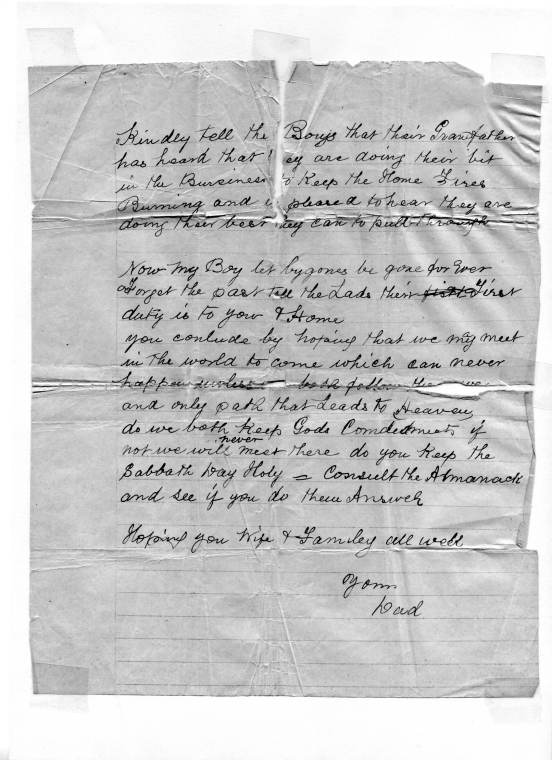 Kindley tell the Boys that their Grandfather
has heard that they are doing their bit
in the Bursiness to Keep the Home Fires
Burning and is pleased to hear they are
doing their best they can to pull through
Now my Boy let bygones be gone for Ever
Forget the past tell the Lads their first First
duty is to you & Home
you conlude by hoping that we may meet
in the world to come which can never
happen unless both follow the
and only path that Leads to Heaven
do we both Keep Gods Comdments if
not we will never meet there do you Keep the
Sabbath Day Holy = Consult the Almanack
and see if you do them Answer
Hoping you Wife & Famley all well
Yours
Dad